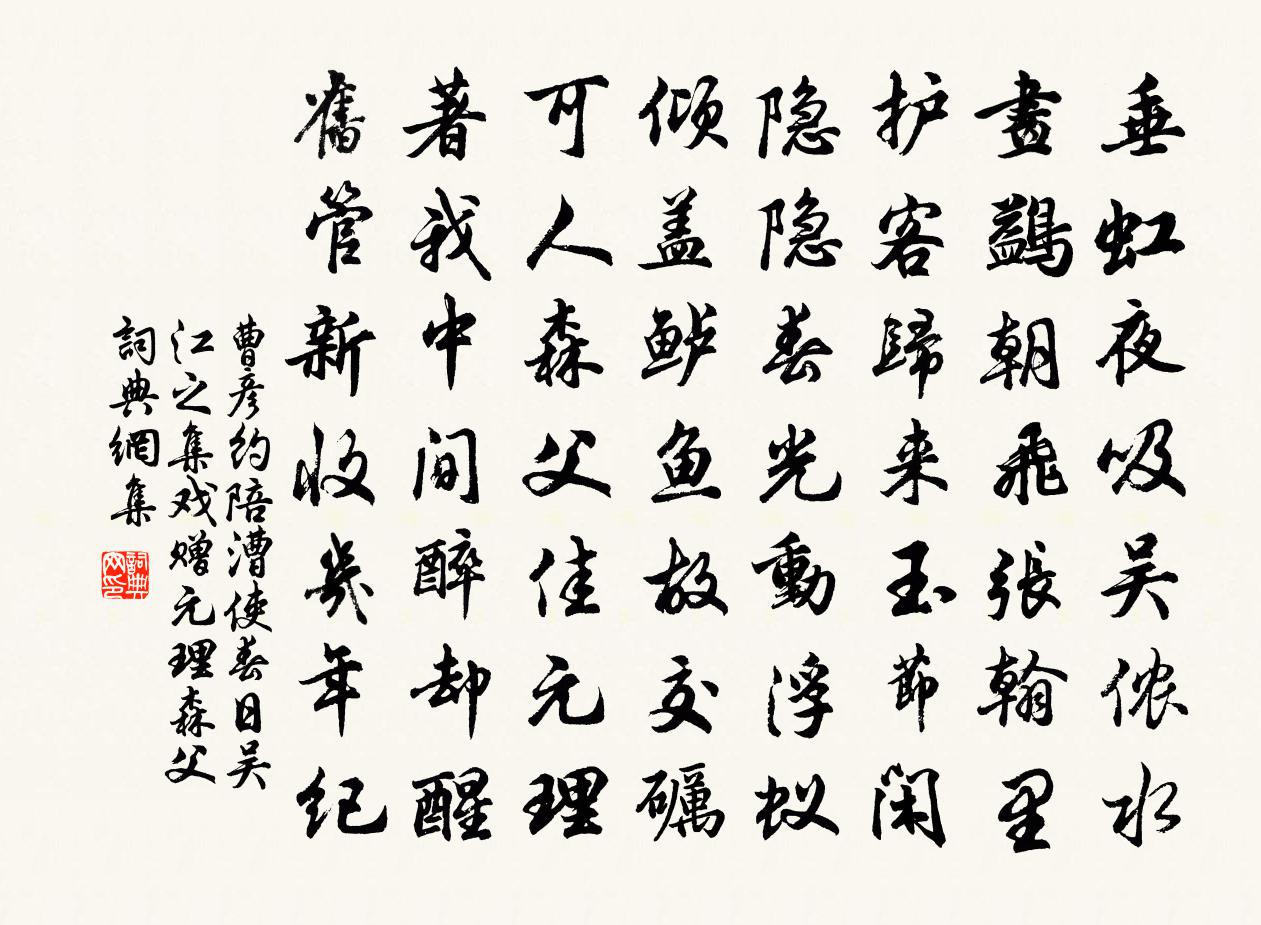 垂虹夜吸吴侬水
畫鷁朝飛張翰里
护客歸来玉節閑
隐隐春光動浮蚁
倾盖鲈魚故交礪
可人森父佳元理
著我中间醉却醒
舊管新收幾年纪
曹彦约陪漕使春日吴
江之集戏赠元理森父
詞典網集
詞典
网印